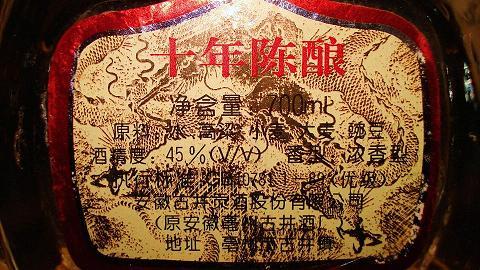 十年陈酿
净含量 700ml
原料:水 高粱 小麦 大麦 豌豆
酒精度:45%(V/V) 香型:浓香型
执行标准 10781 89(优级)
安徽古井贡酒股份有限公司
(原安徽亳州古井酒厂
地址 亳州市古井镇